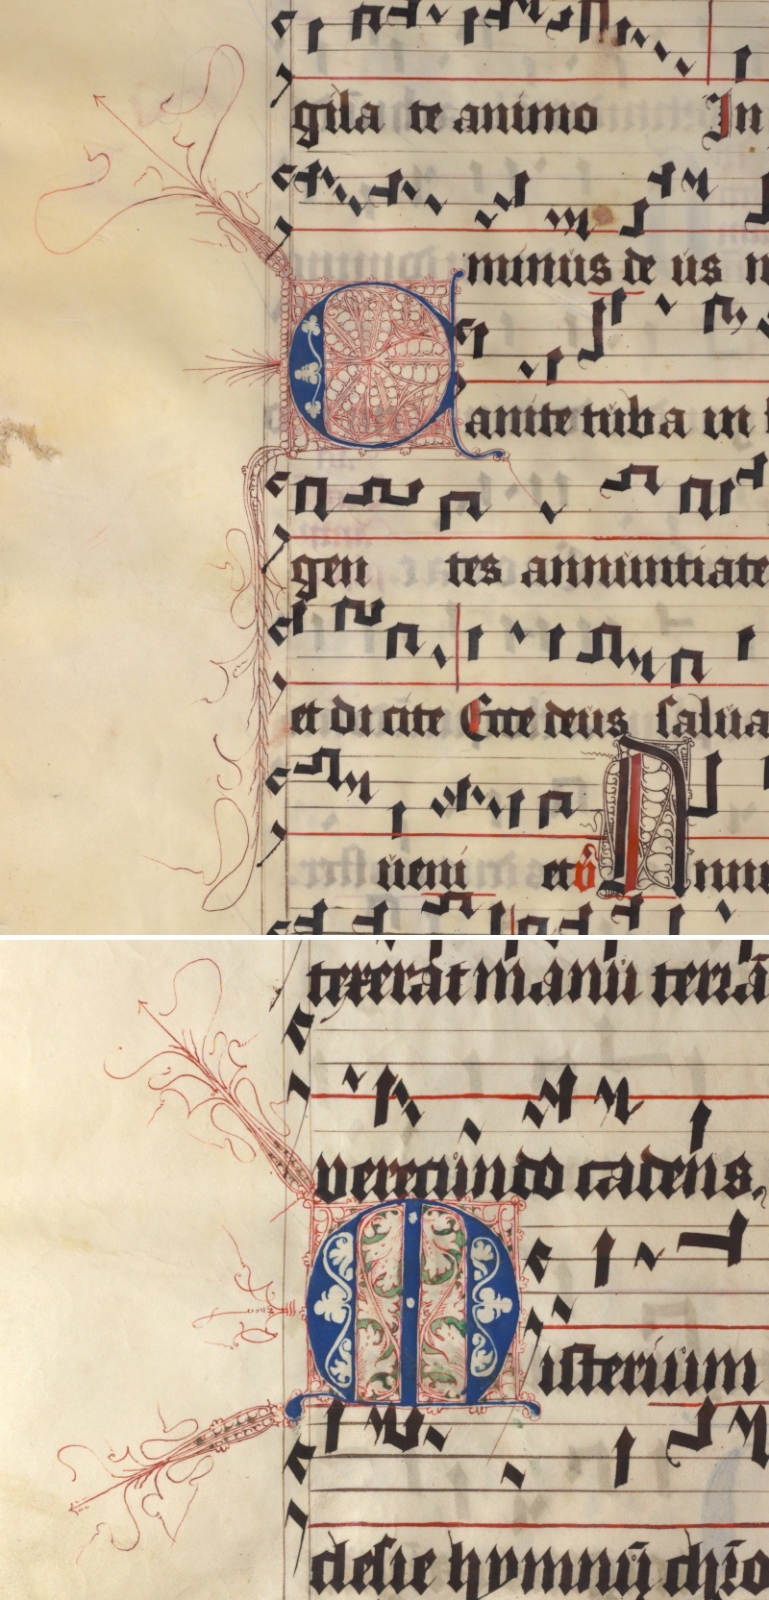 gila te animo In
minus de us n
Canite tuba in
gen tes annuntiate
et di cite Ecce deus salua
ueni et v̊ Annu
texerat manū terrā
verecundo cadens.
Misterium
clesie hymnū chr̄o